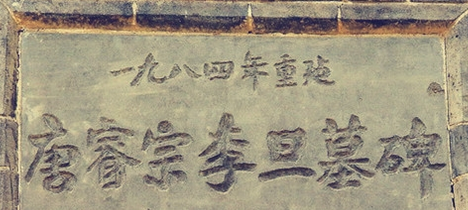 一九八四年重
唐睿宗李旦墓碑